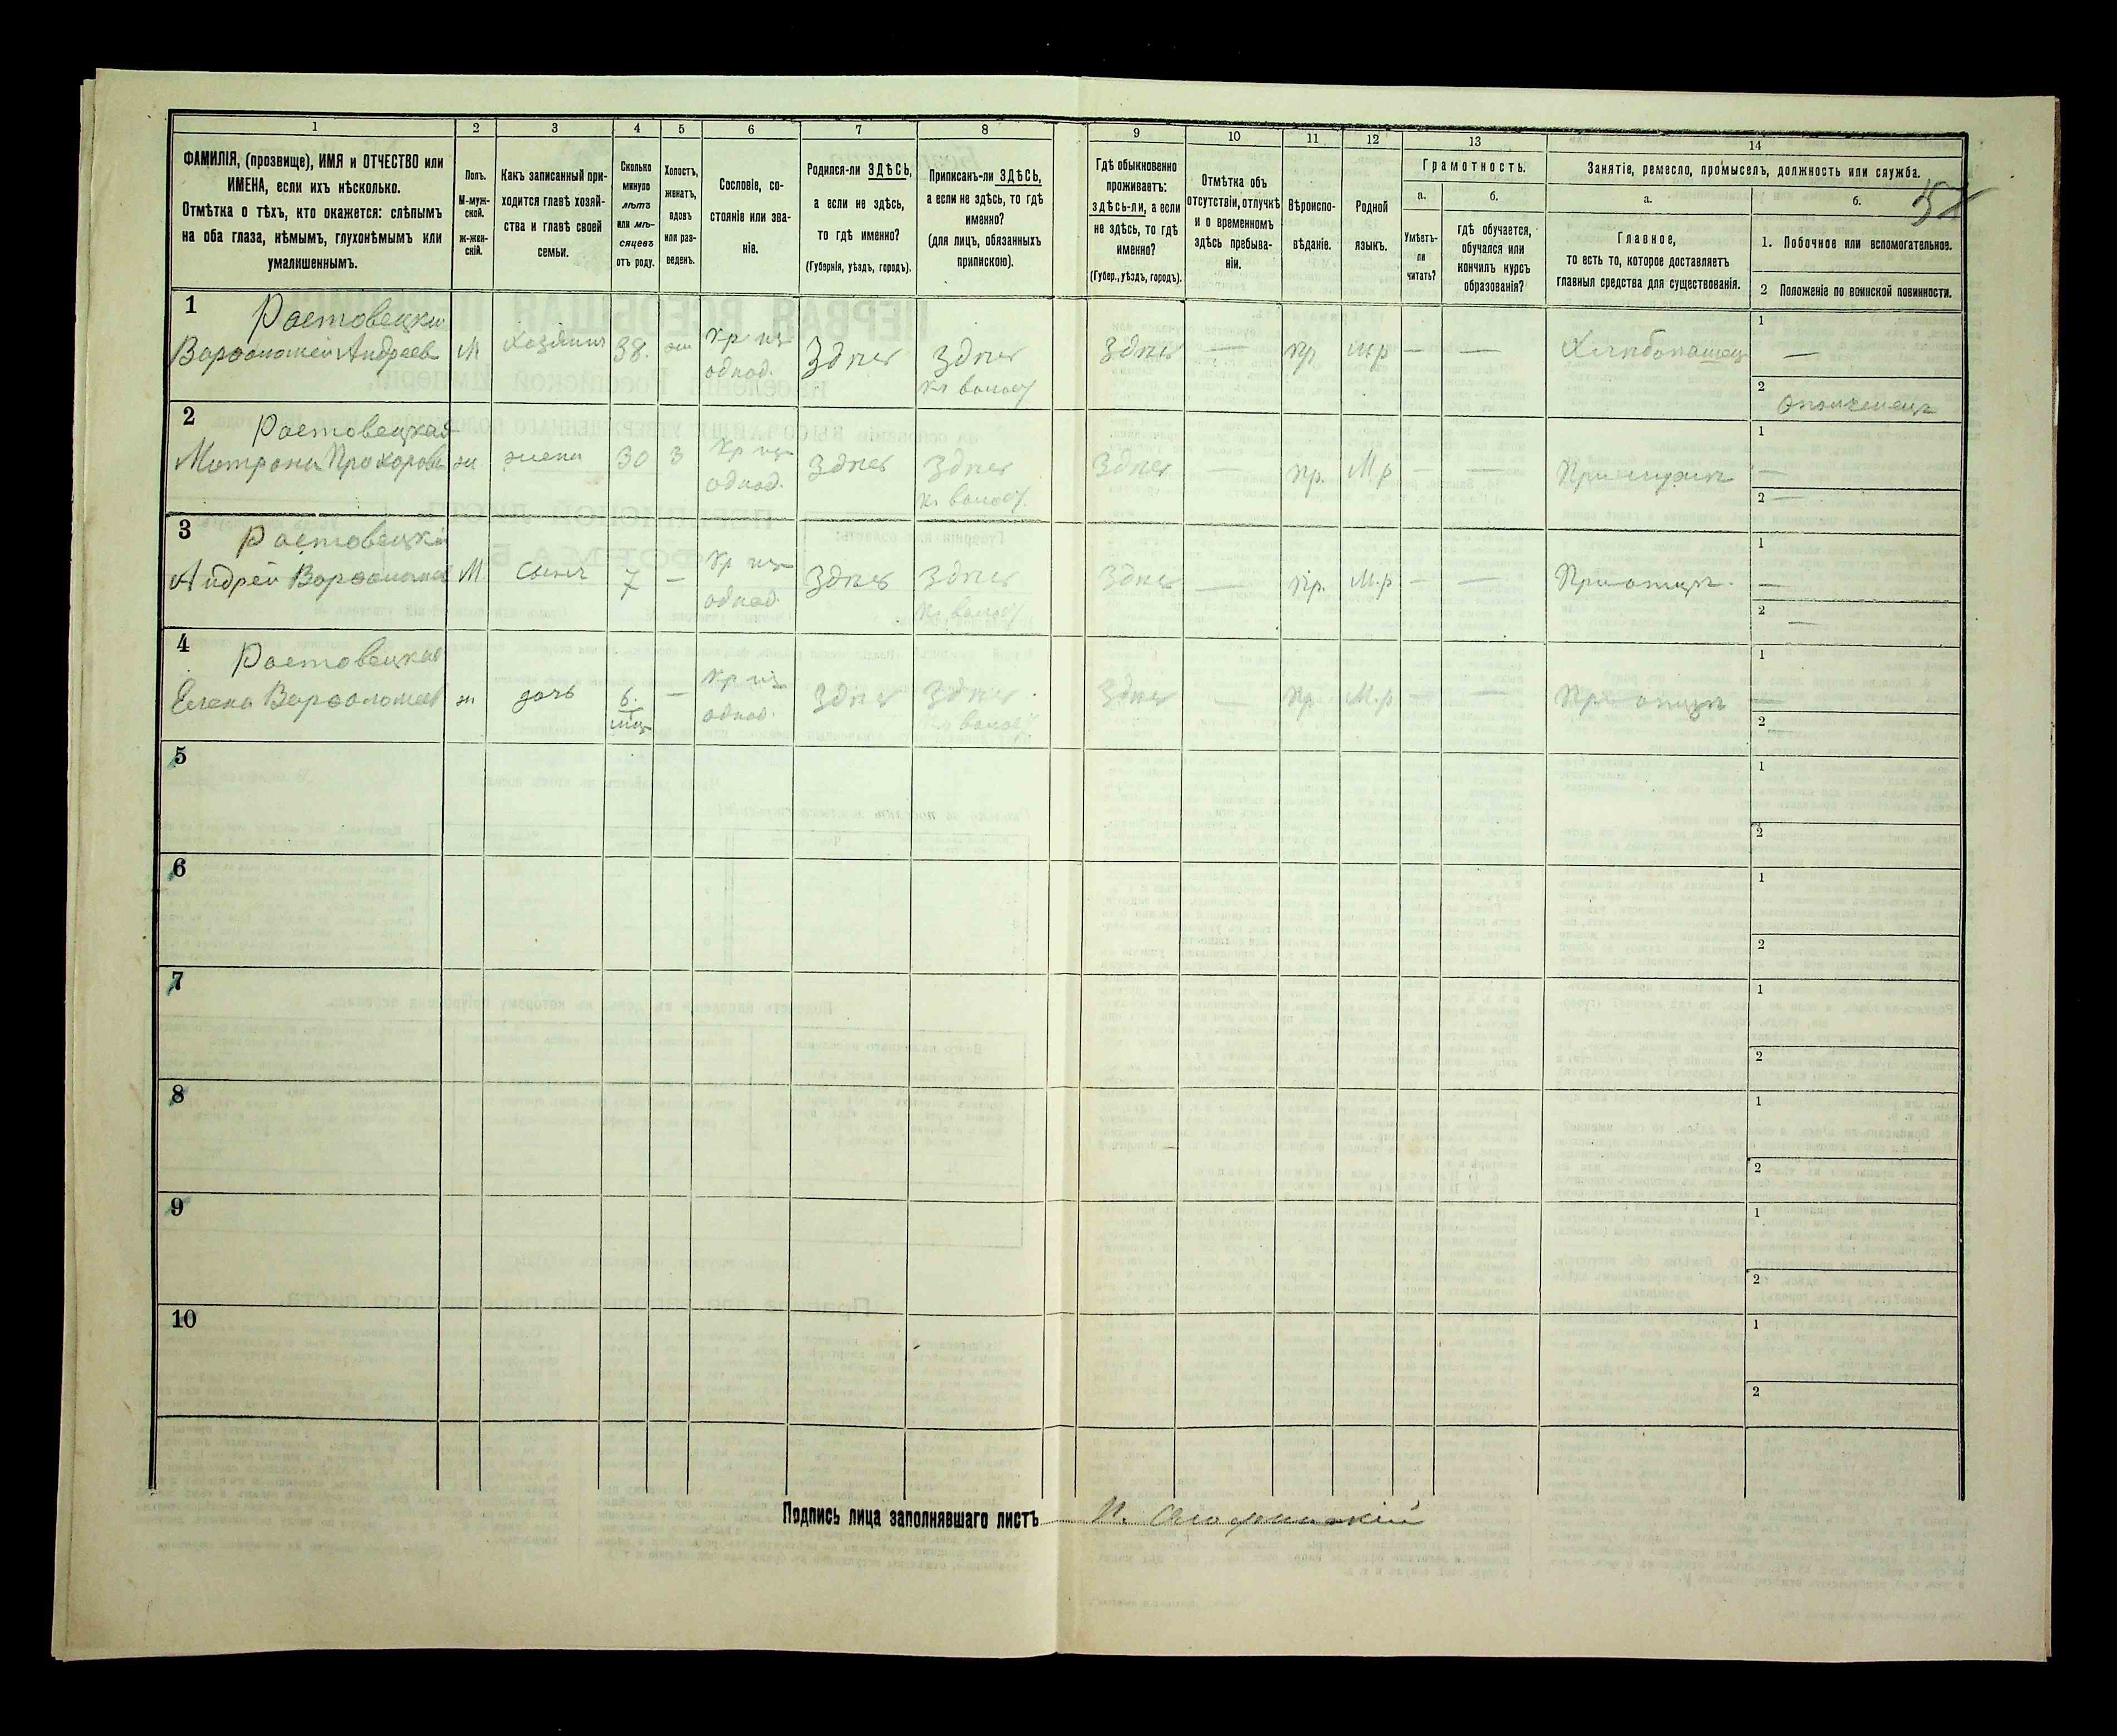 1 2 3 4 5 6 7 8 9 10 11 12 13 14
ФАМИЛІЯ, (прозвище), ИМЯ и ОТЧЕСТВО или
ИМЕНА, если ихъ нѣсколько.
Отмѣтка о тѣхъ, кто окажется: слѣпымъ
на оба глаза, нѣмымъ, глухонѣмымъ или
умалишеннымъ.
Полъ.
М-муж-
ской.
Ж-жен-
скій.
Какъ записанный при-
ходится главѣ хозяй-
ства и главѣ своей
семьи.
Сколько
минуло
лѣтъ
или мѣ-
сяцевъ
отъ роду.
Холостъ,
женатъ,
вдовъ
или раз-
веденъ.
Сословіе, со-
стояніе или зва-
ніе.
Родился-ли ЗДѢСЬ,
а если не здѣсь,
то гдѣ именно?
(Губернія, уѣздъ, городъ).
Приписанъ-ли ЗДѢСЬ,
а если не здѣсь, то гдѣ
именно?
(для лицъ, обязанныхъ
припискою).
Гдѣ обыкновенно
проживаетъ:
здѣсь-ли, а если
не здѣсь, то гдѣ
именно?
(Губер., уѣздъ, городъ).
Отмѣтка объ
отсутствіи, отлучкѣ
и о временномъ
здѣсь пребыва-
ніи.
Вѣроиспо-
вѣданіе.
Родной
языкъ.
Грамотность.
а.
Умѣетъ-
ли
читать?
б.
гдѣ обучается,
обучался или
кончилъ курсъ
образованія?
Занятіе, ремесло, промыселъ, должность или служба.
а.
Главное,
то есть то, которое доставляетъ
главныя средства для существованія.
б.
1. Побочное или вспомогательное.
2 Положеніе по воинской повинности.
1 Растовецкий
Варфоломей Андреев М Хозяинъ 38. ж Кр из
однод. Здесь Здесь Здесь — пр м.р — — Хлебопашец 1 —
2 Ополченец
2 Растовецкая
Матрона Прохорова ж жена 30 З Кр из
однод. Здесь Здесь Здесь — пр. М.р — — 1 —
2 —
3 Растовецкий
Андрей Варфоломеев М сынъ 7 — Кр из
однод. Здесь Здесь Здесь — пр. М.р — — При отце 1 —
2 —
4 Растовецкая
Елена Варфоломеев ж дочь 6.
мец — Кр из
однод. Здесь Здесь Здесь — пр М.р — — При отце 1 —
2 —
5 1
2
6 1
2
7 1
2
8 1
2
9 1
2
10 1
2
Подпись лица заполнявшаго листъ